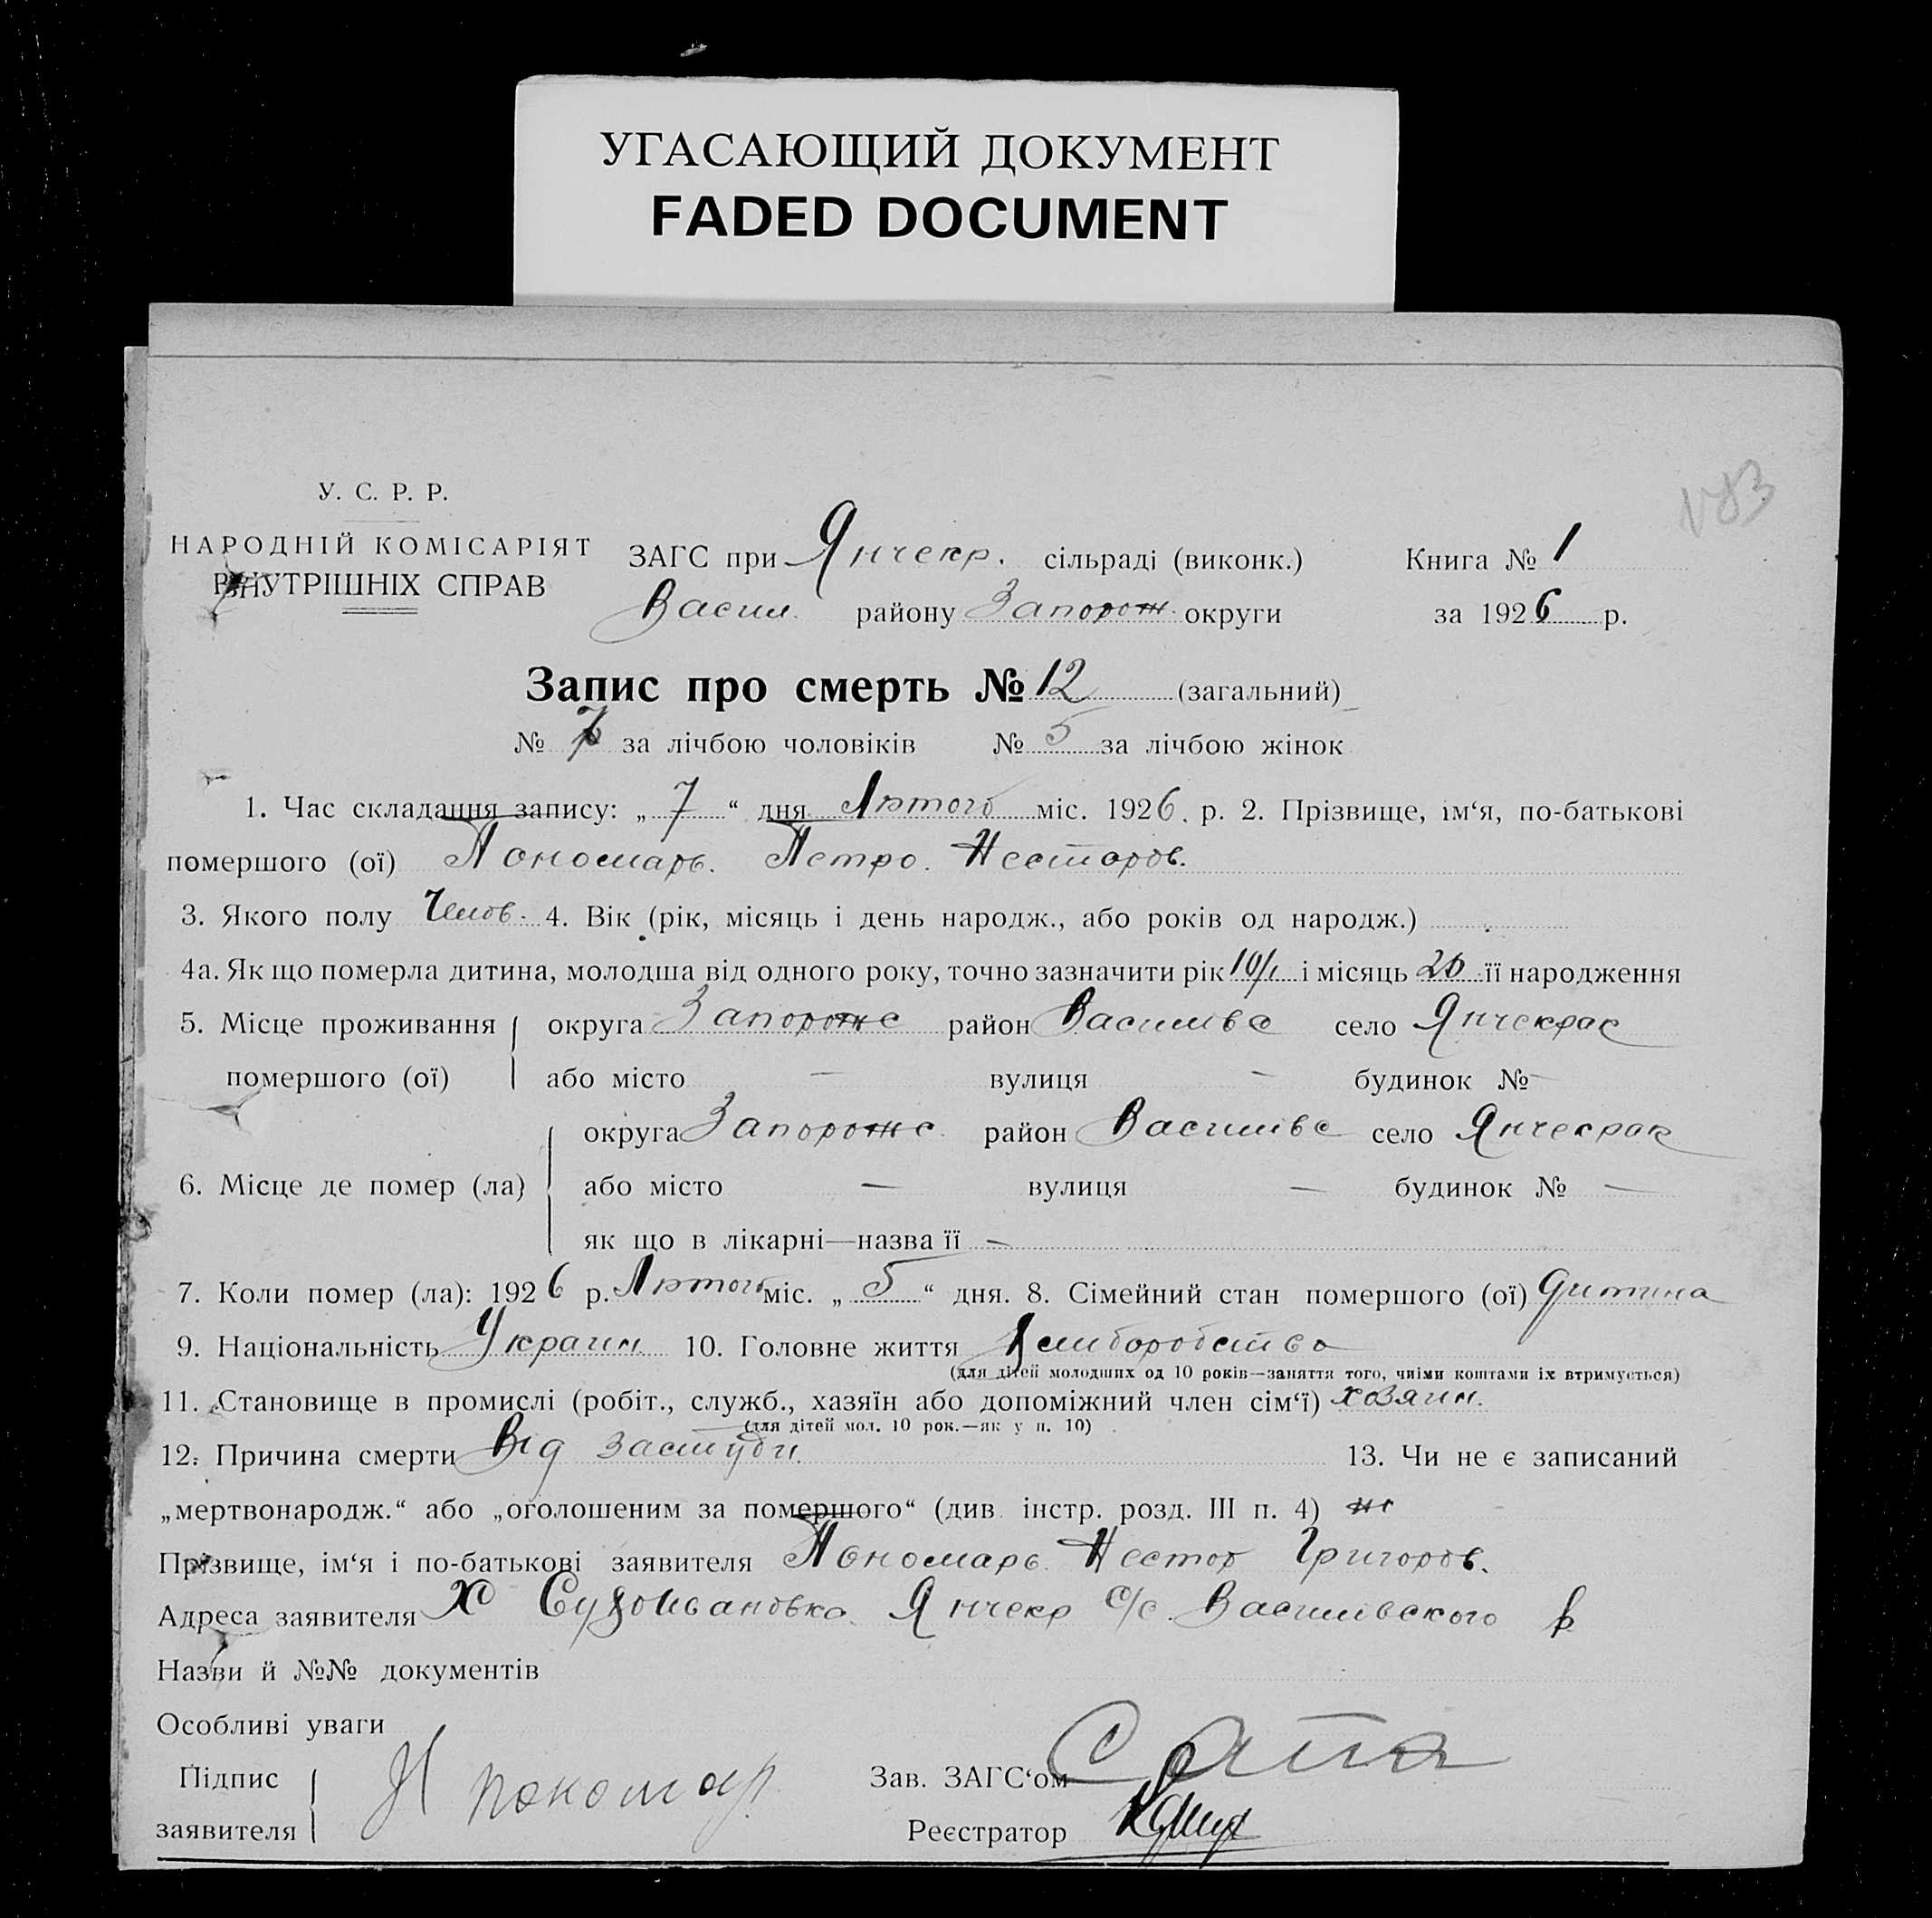 УГАСАЮЩИЙ ДОКУМЕНТ
FADED DOCUMENT
У. С. Р. Р.
НАРОДНІЙ КОМІСАРІЯТ
ВНУТРІШНІХ СПРАВ
ЗАГС при Янчекр. сільраді (виконк.) Книга № 1
Васил. району Запорож. округи за 1926 р.
Запис про смерть № 12 (загальний)
№ 7 за лічбою чоловіків № 5 за лічбою жінок
1. Час складання запису: „ 7 “ дня Лютого міс. 1926. р. 2. Прізвище, ім‘я, по-батькові
помершого (ої) Пономарь. Петро. Несторов.
3. Якого полу Челов. 4. Вік (рік, місяць і день народж., або років од народж.)
4а. Як що померла дитина, молодша від одного року, точно зазначити рік 10/1 і місяць 26 її народження
5. Місце проживання округа Запорожс район Васильвс село Янчекрак
помершого (ої) або місто — вулиця — будинок № —
округа Запорожс район Васильвс село Янчекрак
6. Місце де помер (ла) або місто — вулиця — будинок № —
як що в лікарні—назва її —
7. Коли помер (ла): 1926 р. Лютого міс. „ 5 “ дня. 8. Сімейний стан помершого (ої) дитина
9. Національність Украин. 10. Головне життя Хлиборобство
(для дітей молодших од 10 років—заняття того, чиїми коштами їх втримується)
11. Становище в промислі (робіт., служб., хазяїн або допоміжний член сім‘ї) хозяин.
(для дітей мол. 10 рок.—як у п. 10)
12. Причина смерти Від застуди. 13. Чи не є записаний
„мертвонародж.“ або „оголошеним за помершого“ (див. інстр. розд. III п. 4) не
Прізвище, ім‘я і по-батькові заявителя Пономарь. Нестор Григоров.
Адреса заявителя Х Сухоивановка. Янчекр с/с. Васильвского р
Назви й №№ документів
Особливі уваги
Підпис
заявителя Н Пономар
Зав. ЗАГС‘ом
Реєстратор